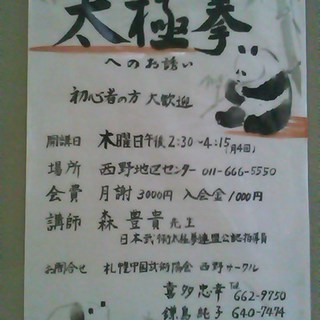 太極拳
へのお誘い
初心者の方 大歓迎
開講日 木曜日午後2:30~4:15(月4回)
場所 西野地区センター 011-666-5550
会費 月謝3000円 入会金1000円
講師 森 豊貴 先生
日本武術太極拳連盟公認指導員
お問合せ 札幌中国武術協会 西野サークル
喜多忠幸 Tel 662-9750
鎌烏純子 640-7474